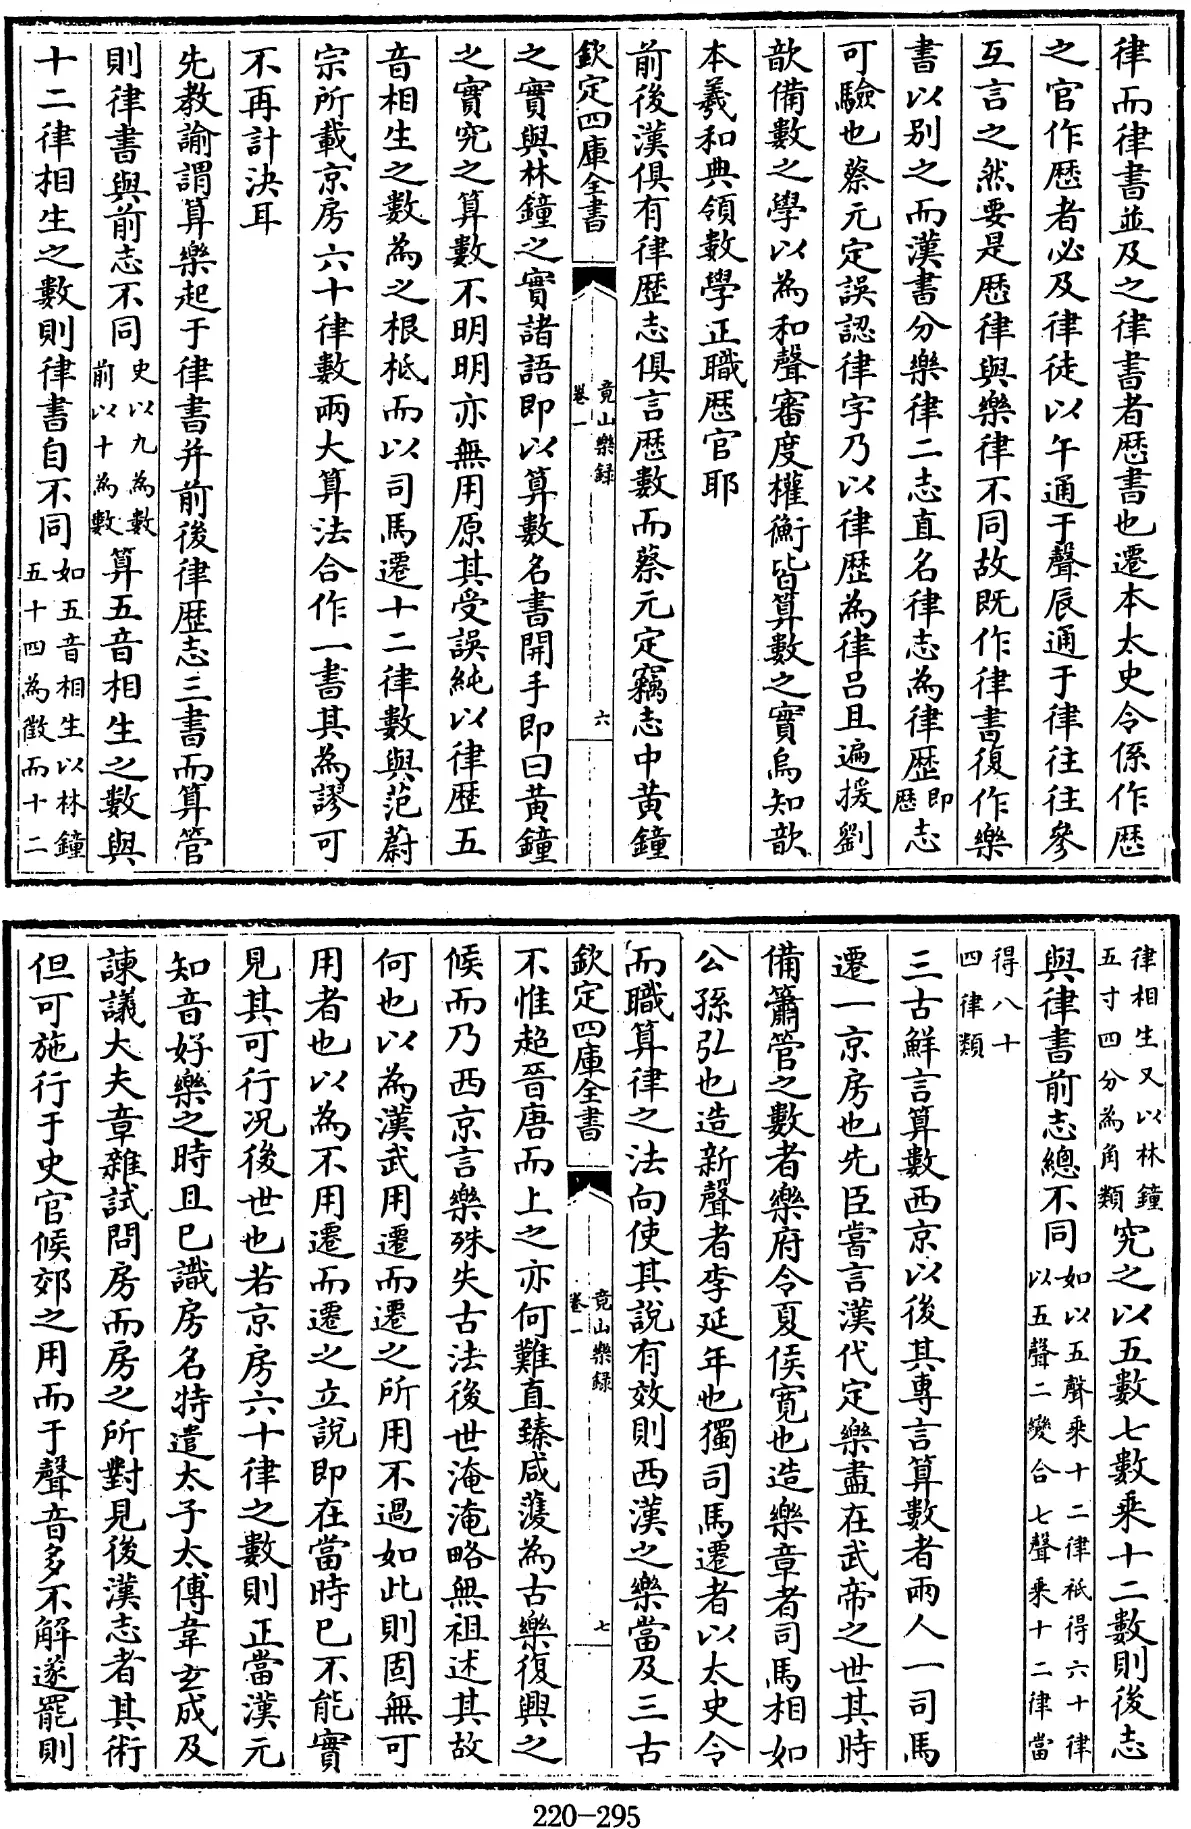 律而律書並及之律書者歴書也遷本太史令係作歴
之官作歴者必及律徒以午通于聲辰通于律往往參
互言之然要是歴律與樂律不同故既作律書復作樂
書以别之而漢書分樂律二志直名律志為律歴即歴志
可驗也蔡元定誤認律字乃以律歴為律吕且遍援劉
歆備數之學以為和聲審度權衡皆算數之實烏知歆
本羲和典領數學正職歴官耶
前後漢俱有律歴志俱言歴數而蔡元定竊志中黄鐘
欽定四庫全書
竟山樂録
卷一
六
之實與林鐘之實諸語即以算數名書開手即曰黄鐘
之實究之算數不明明亦無用原其受誤純以律歴五
音相生之數為之根柢而以司馬遷十二律數與范蔚
宗所載京房六十律數兩大算法合作一書其為謬可
不再計決耳
先教諭謂算樂起于律書并前後律歴志三書而算管
則律書與前志不同史以九為數前以十為數算五音相生之數與
十二律相生之數則律書自不同如五音相生以林鐘五十四為徵而十二
律相生又以林鐘五寸四分為角類究之以五數七數乘十二數則後志
與律書前志總不同如以五聲乘十二律祇得六十律以五聲二變合七聲乘十二律當
得八十四律類
三古鮮言算數西京以後其專言算數者兩人一司馬
遷一京房也先臣嘗言漢代定樂盡在武帝之世其時
備簫管之數者樂府令夏侯寛也造樂章者司馬相如
公孫弘也造新聲者李延年也獨司馬遷者以太史令
而職算律之法向使其説有效則西漢之樂當及三古
欽定四庫全書
竟山樂録
卷一
七
不惟超晉唐而上之亦何難直臻咸濩為古樂復興之
候而乃西京言樂殊失古法後世淹淹略無祖述其故
何也以為漢武用遷而遷之所用不過如此則固無可
用者也以為不用遷而遷之立説即在當時已不能實
見其可行况後世也若京房六十律之數則正當漢元
知音好樂之時且已識房名特遣太子太傅韋玄成及
諫議大夫章雜試問房而房之所對見後漢志者其術
但可施行于史官候郊之用而于聲音多不解遂罷則
220-295